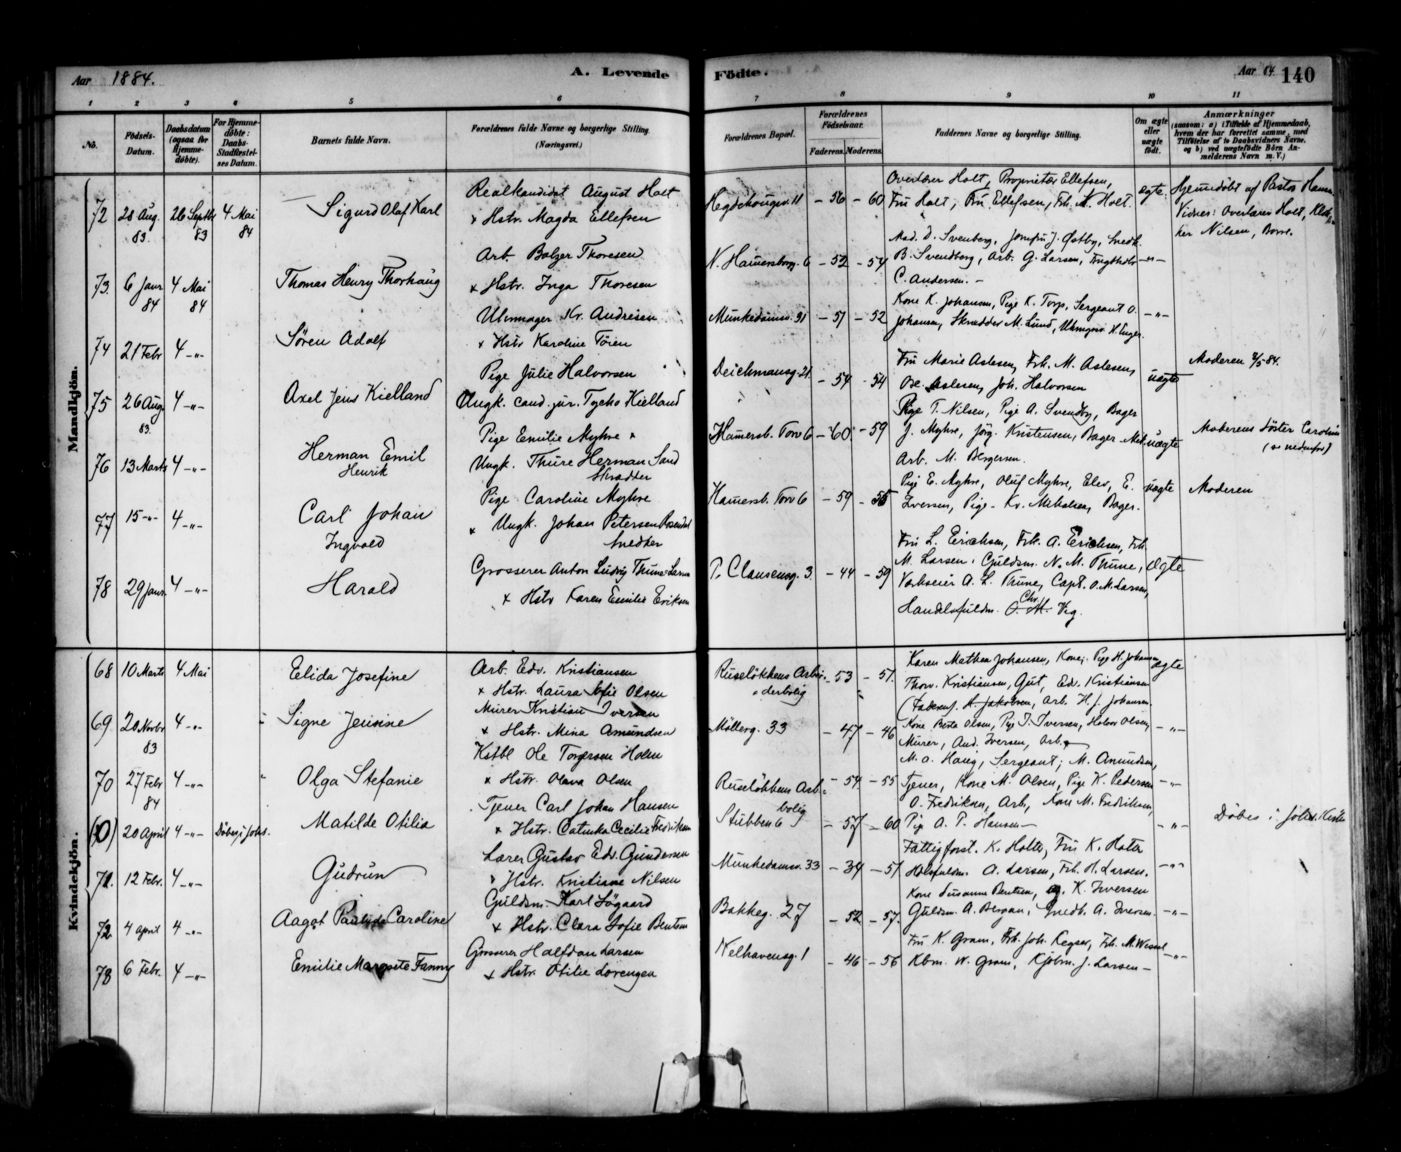 Aar 1884.
A. Levende
Födte.
Aar 84
140
1 2 3 4 5 6
7 8 9 10 11
No.
Födsels-Datum.
Daabsdatum (ogsaa for Hjemme-døbte).
For Hjemme-døbte: Daabs-Stadfæstelses Datum.
Barnets fulde Navn.
Forældrenes fulde Navne og borgerlige Stilling. (Næringsvei.)
Forældrenes Bopæl.
Forældrenes Födselsaar.
Faderens. Moderens.
Faddernes Navne og borgerlige Stilling.
Om ægte eller uægte födt.
Anmærkninger
Mandkjön.
72 28 Aug. 83 26 Septbr 83 4 Mai 84 Sigurd Olaf Karl
Realkandidat August Holt
x Hstr. Magda Ellefsen
Hegdehougsv. 11 - 56 - 60
Overlærer Holt, Proprietær Ellefsen,
Fru Holt, Fru Ellefsen, Frk. Holt
ægte
Hjemmedøbt af Pastor
Vidner: Overlærer Holt,
Nilsen, Borre.
73 6 Janr 84 4 Mai 84 Thomas Henry Thorhaug
Arb. Bolzer Thoresen
x Hstr. Inga Thoresen
N. Hamersborg 6 - 52 - 54
Mad. D. Svenberg, Jomfru J. Østby, Snedk.
B. Svendberg, Arb. G. Larsen,
C. Andersen. -
- " -
74 21 Febr 4 - " - Søren Adolf
Uhrmager Kr. Andresen
x Hstr Karoline Tören
Munkedamsv. 91 - 51 - 52
Kone K. Johansen, Pige K. Torp, Sergeant O.
Johansen, Skrædder M. Lund,
- " -
75 26 Aug. 83 4 - " - Axel Jens Kielland
Pige Julie Halvorsen
Ungk. cand. jur. Tycho Kielland
Deichmansg. 21 - 54 - 54
Fru Marie Aslesen, Frk. M. Aslesen,
Ole Aslesen, Joh. Halvorsen
uægte
Moderen
76 13 Marts 4 - " - Herman Emil
Henrik
Pige Emilie Myhre x
Ungk. Thure Herman Sand
Skrædder
Hamersb. Torv 6 - 60 - 59
Pige T. Nilsen, Pige A. Svendby, Bager
J. Myhre, Jörg. Kristensen, Bager
Arb. M. Bergersen.
uægte
Moderens Söster Caroline
77 15 - " - 4 - " - Carl Johan
Ingvold
Pige Caroline Myhre
x Ungk. Johan Petersen
Snedker
Hamersb. Torv 6 - 59 - 55
Pige E. Myhre, Oluf Myhre, Elev, E.
Iversen, Pige - Kr. Mikelsen, Bager.
uægte
Moderen
78 29 Janr 4 - " - Harald
Grosserer Anton Ludvig Thune-Larsen
x Hstr Karen Emilie Eriksen
P. Clausensg. 3. - 44 - 59
Fru L. Erichsen, Frk. A. Erichsen, Frk.
M. Larsen, Guldsm. N. M. Thune,
A. L. Thune, Capt. O. M. Larsen,
Chr. Vig.
ægte
Kvindekjön.
68 10 Marts 4 Mai Elida Josefine
Arb. Edv. Kristiansen
x Hstr. Laura Sofie Olsen
Ruseløkkens Arbei-
derbolig - 53 - 51
Karen Mathea Johansen, Kone, Pige H. Johansen
Thorv. Kristiansen, Gut, Edv. Kristiansen
Jakobsen, Arb. H. J. Johansen
ægte
69 20 Novbr 83 4 - " - Signe Jensine
Murer Kristian Iversen
x Hstr. Mina Amundsen
Möllerg. 33 - 47 - 46
Kone Berta Olsen, Pige J. Iversen, Halvor Olsen,
Murer, And. Iversen, Arb.
- " -
70 27 Febr 84 4 - " - Olga Stefanie
Kstbl Ole Torgersen Holen
x Hstr. Olava Olsen
Ruseløkkens Arb.
bolig - 54 - 55
M. O. Haug, Sergeant; M. Amundsen,
Tjener, Kone M. Olsen, Pige K. Pedersen
O. Fredriksen, Arb, Kone M. Fredriksen,
- " -
(30) 20 April 4 - " - Döbes i Johs. Matilde Otilia
Tjener Carl Johan Hansen
x Hstr. Catinka Cecilie Fredriksen
Stubben 6 - 57 - 60
Pige A. P. Hansen -
- " -
Döbes i Johs. Kirke
71. 12 Febr. 4 - " - Gudrun
Lærer Gustav Edv. Gundersen
x Hstr. Kristiane Nilsen
Munkedamsv. 33 - 34 - 51
Fattigforst. K. Holte, Fru K. Holte
A. Larsen, Frk. H. Larsen.
- " -
72 4 April 4 - " - Aagot Caroline
Guldsm. Karl Sögaard
x Hstr. Clara Sofie Bentsen
Bakkeg. 27 - 52 - 57
Kone Susanne Bentsen, K. Iversen
Guldsm. A. Bergan, Snedk. A. Iversen
- " -
78 6 Febr. 4 - " - Emilie Margrete Fanny
Grosserer Halfdan Larsen
x Hstr. Otilie Lorengen
Welhavensg. 1 - 46 - 56
Fru K. Gram, Frk. Joh. Keyser, Frk. M. Wessel
Kbm. W. Gram, Kjöbm. J. Larsen -
- " -